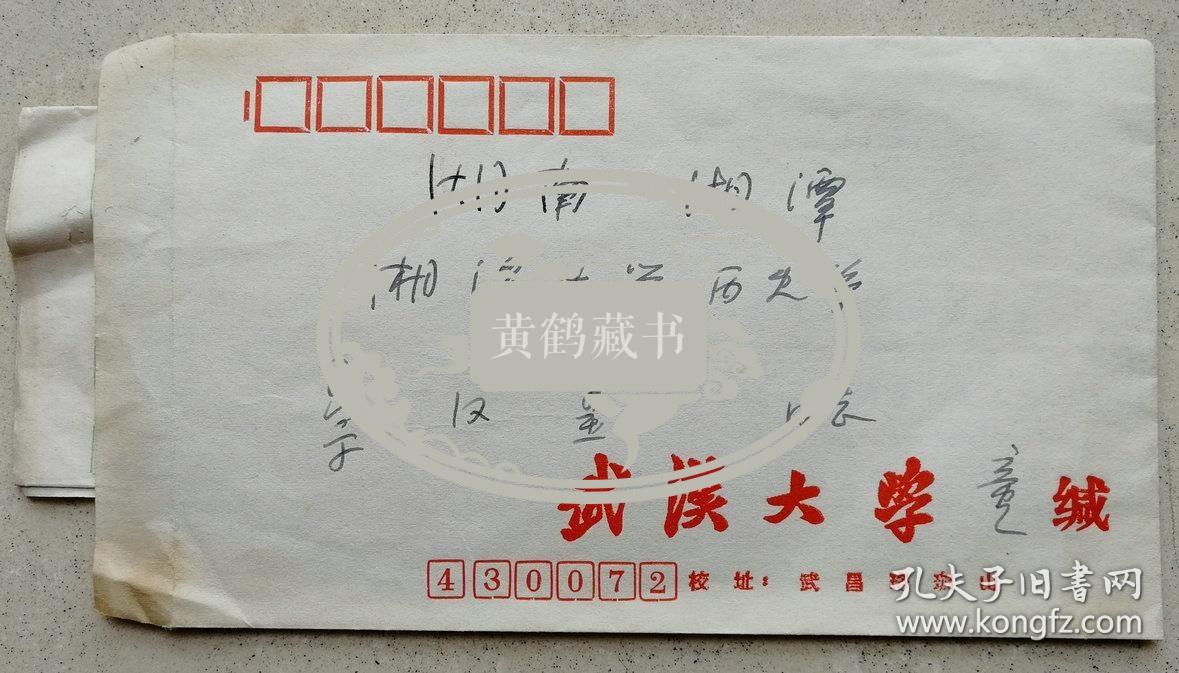 湖南 湘潭
湘潭大学历史系
黄鹤藏书
汉
武汉大学 缄
430072 校址：武昌珞珈山
孔夫子旧书网
www.kongfz.com